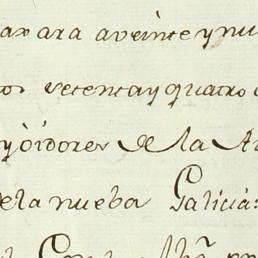 axara aveinte y nu
tos setenta y quatro
y oidores de la Au
de la nueba Galicia